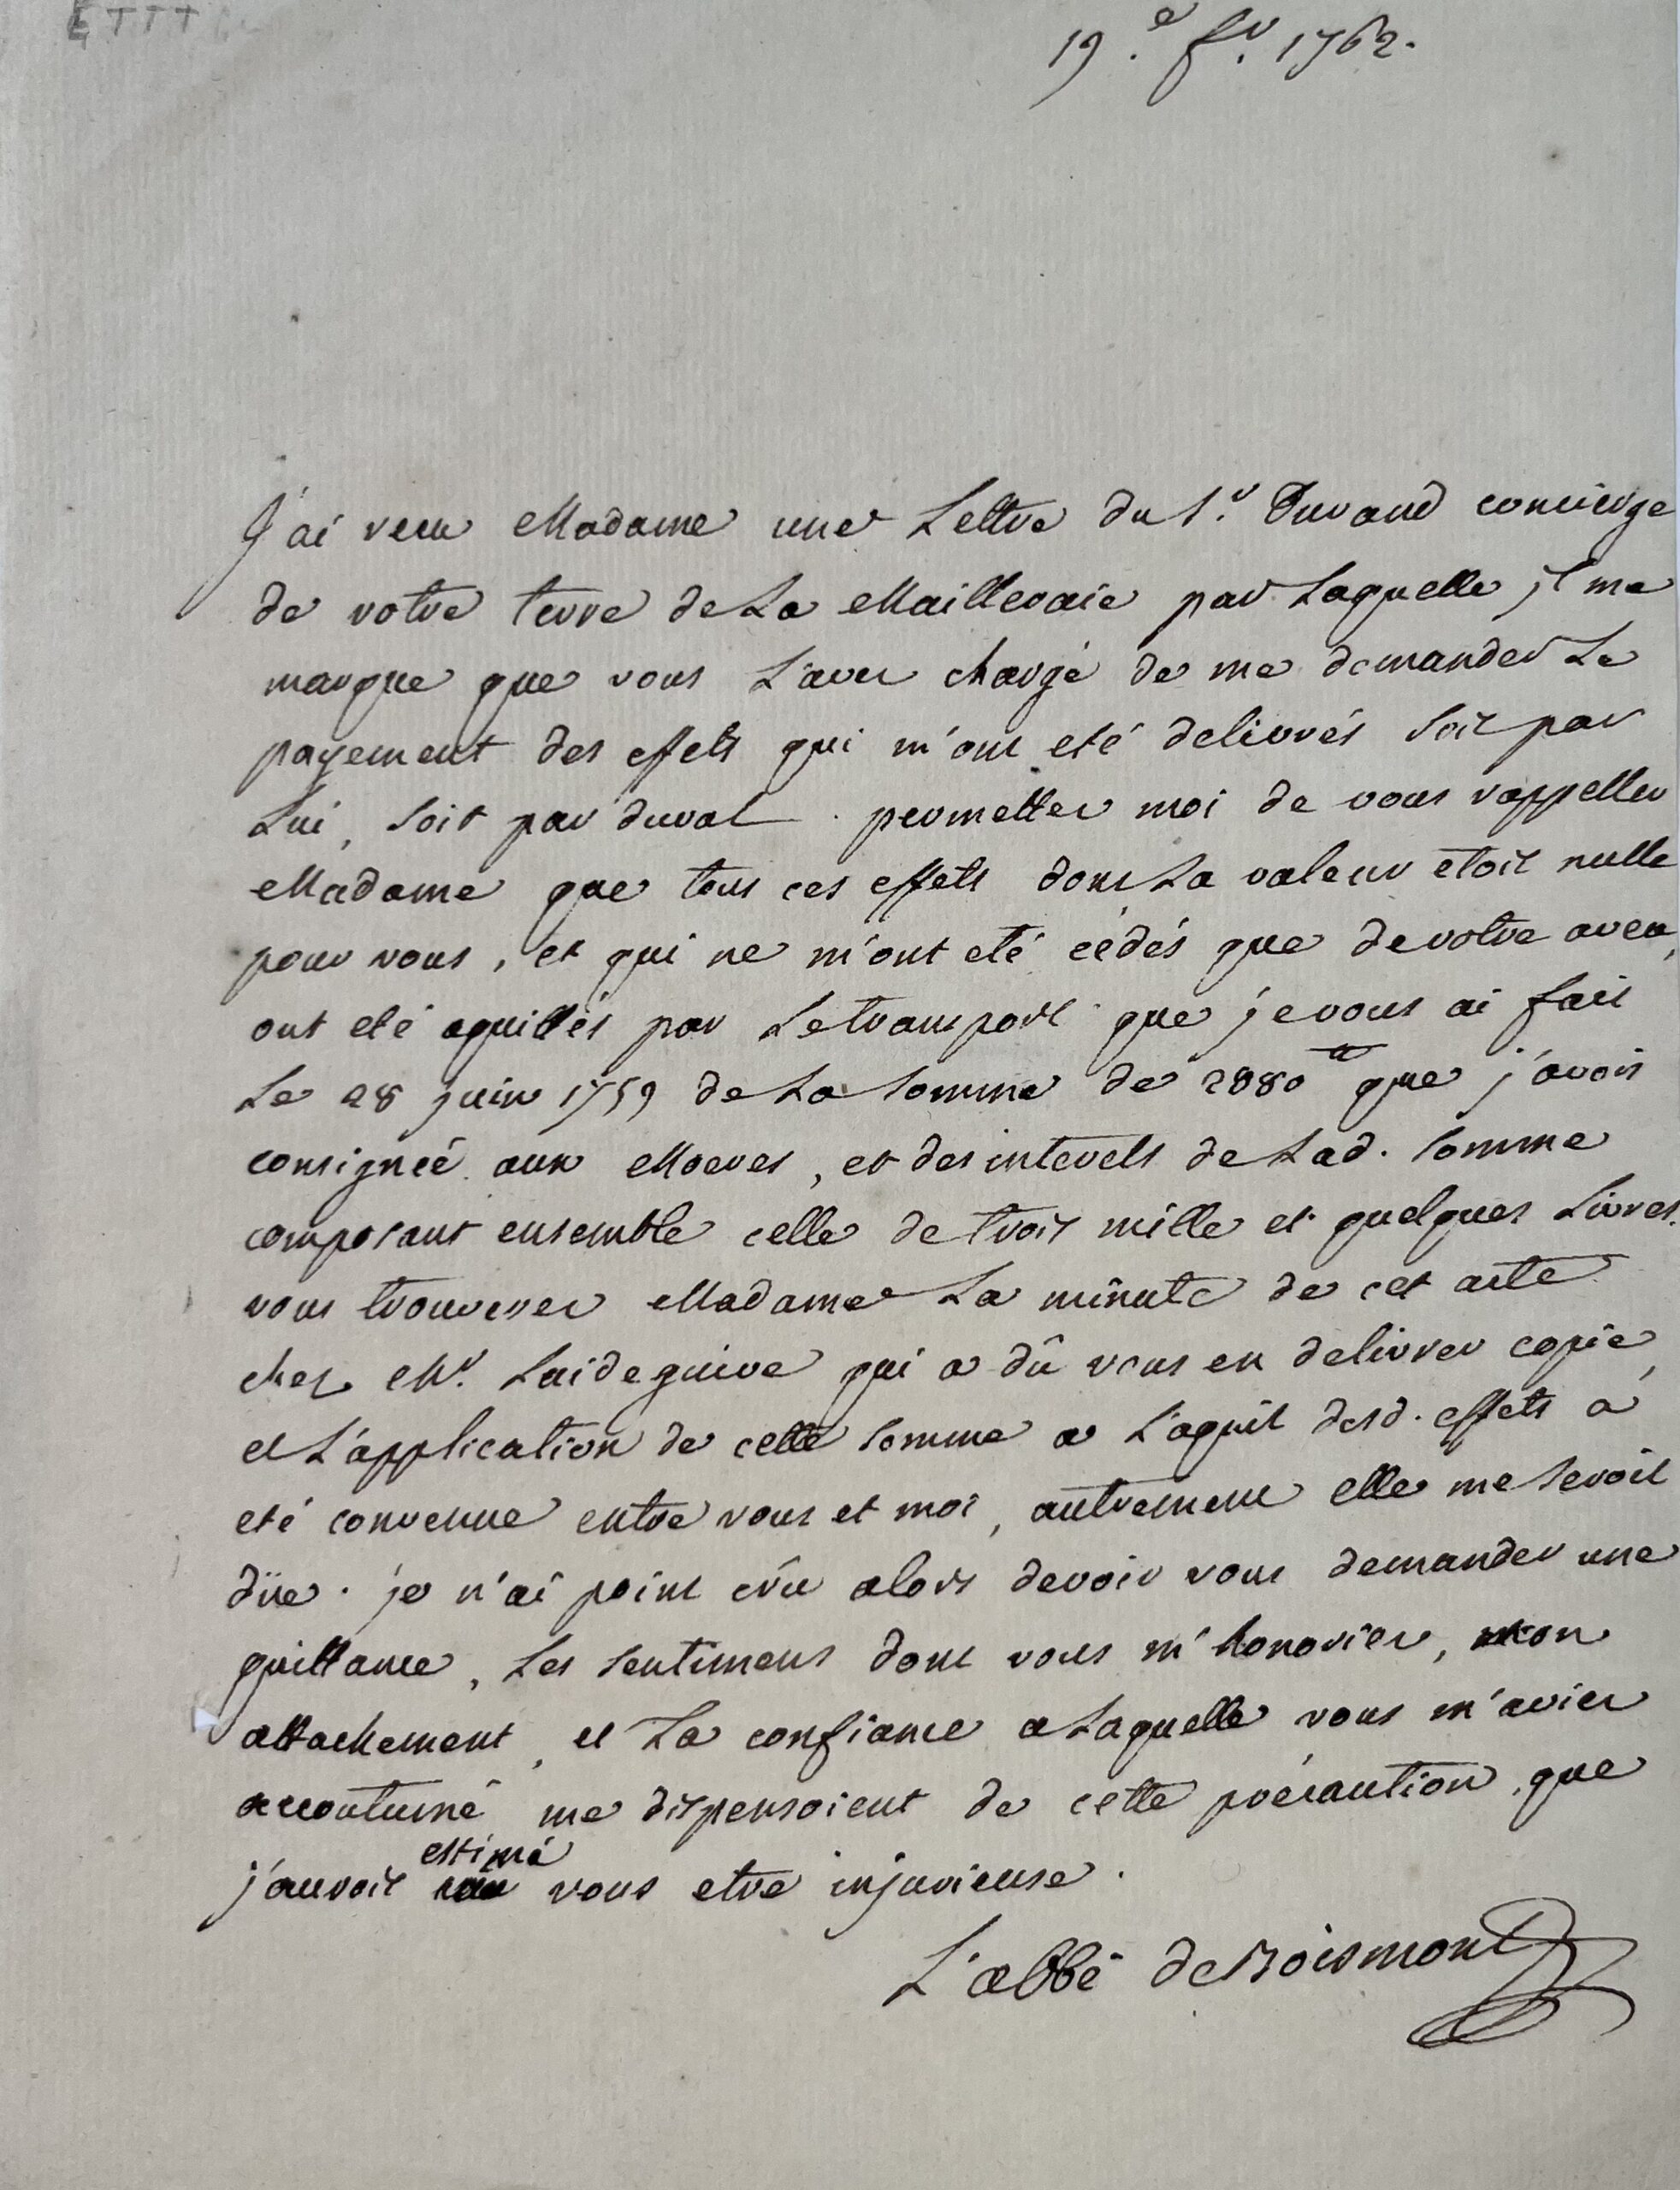 ETTT
19.e fr. 1762.
J'ai recu Madame une Lettre du Sr. Durand concierge
de votre terre de La Mailleraie par Laquelle il me
marque que vous L'avez chargé de me demander Le
payement des effets qui m'ont eté delivrés soit par
Lui, soit par duval. permettez moi de vous rappeller
Madame que tous ces effets dont La valeur etoit nulle
pour vous, et qui ne m'ont eté cédés que de votre aveu,
ont eté aquittés par Le transport que je vous ai fait
Le 28 juin 1759 de La somme de 2880 ₶ que j'avois
consignée aux , et des interets de Lad. somme
composant ensemble celle de trois mille et quelques Livres.
vous trouverez Madame La minute de cet acte
chez Mr. Laideguive qui a dû vous en delivrer copie,
et L'application de cette somme a L'aquit desd. effets a
eté convenue entre vous et moi, autrement elle me seroit
düe. je n'ai point crû alors devoir vous demander une
quittance, Les sentimens dont vous m'honoriez, mon
attachement, et La confiance a Laquelle vous m'aviez
accoutumé me dispensoient de cette précaution que
estimé
j'auroit vous etre injurieuse.
L'abbé de Boismont